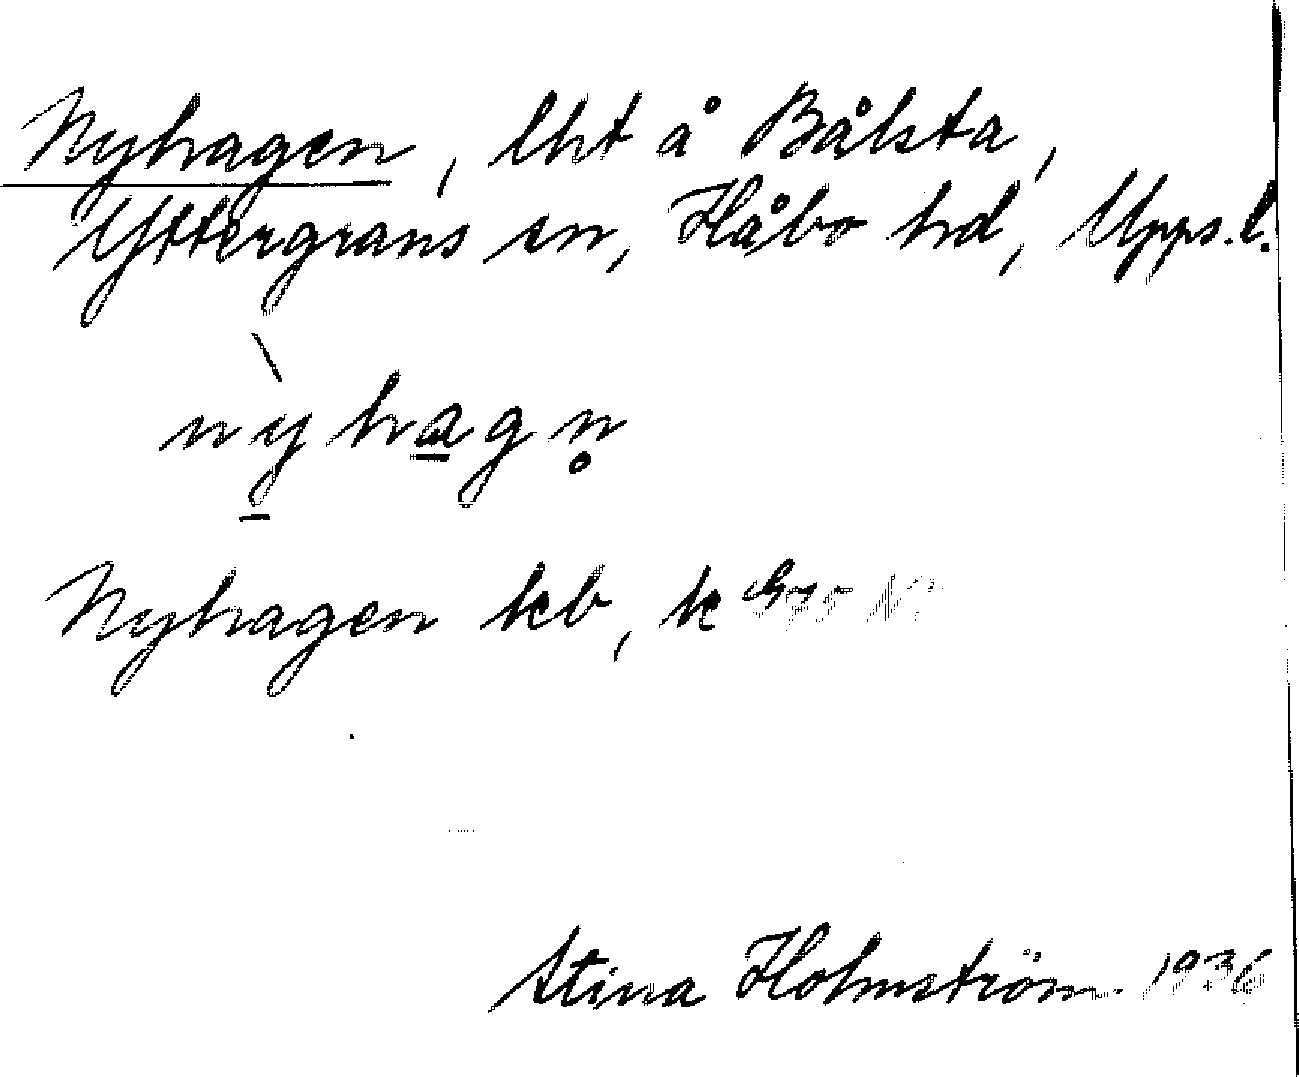 Nyhagen, lht å Bålsta,
Yttergrans sn, Håbo hd, Upps. l.
nỳhagn̥
Nyhagen kb, k G75
Stina Holmström 1936